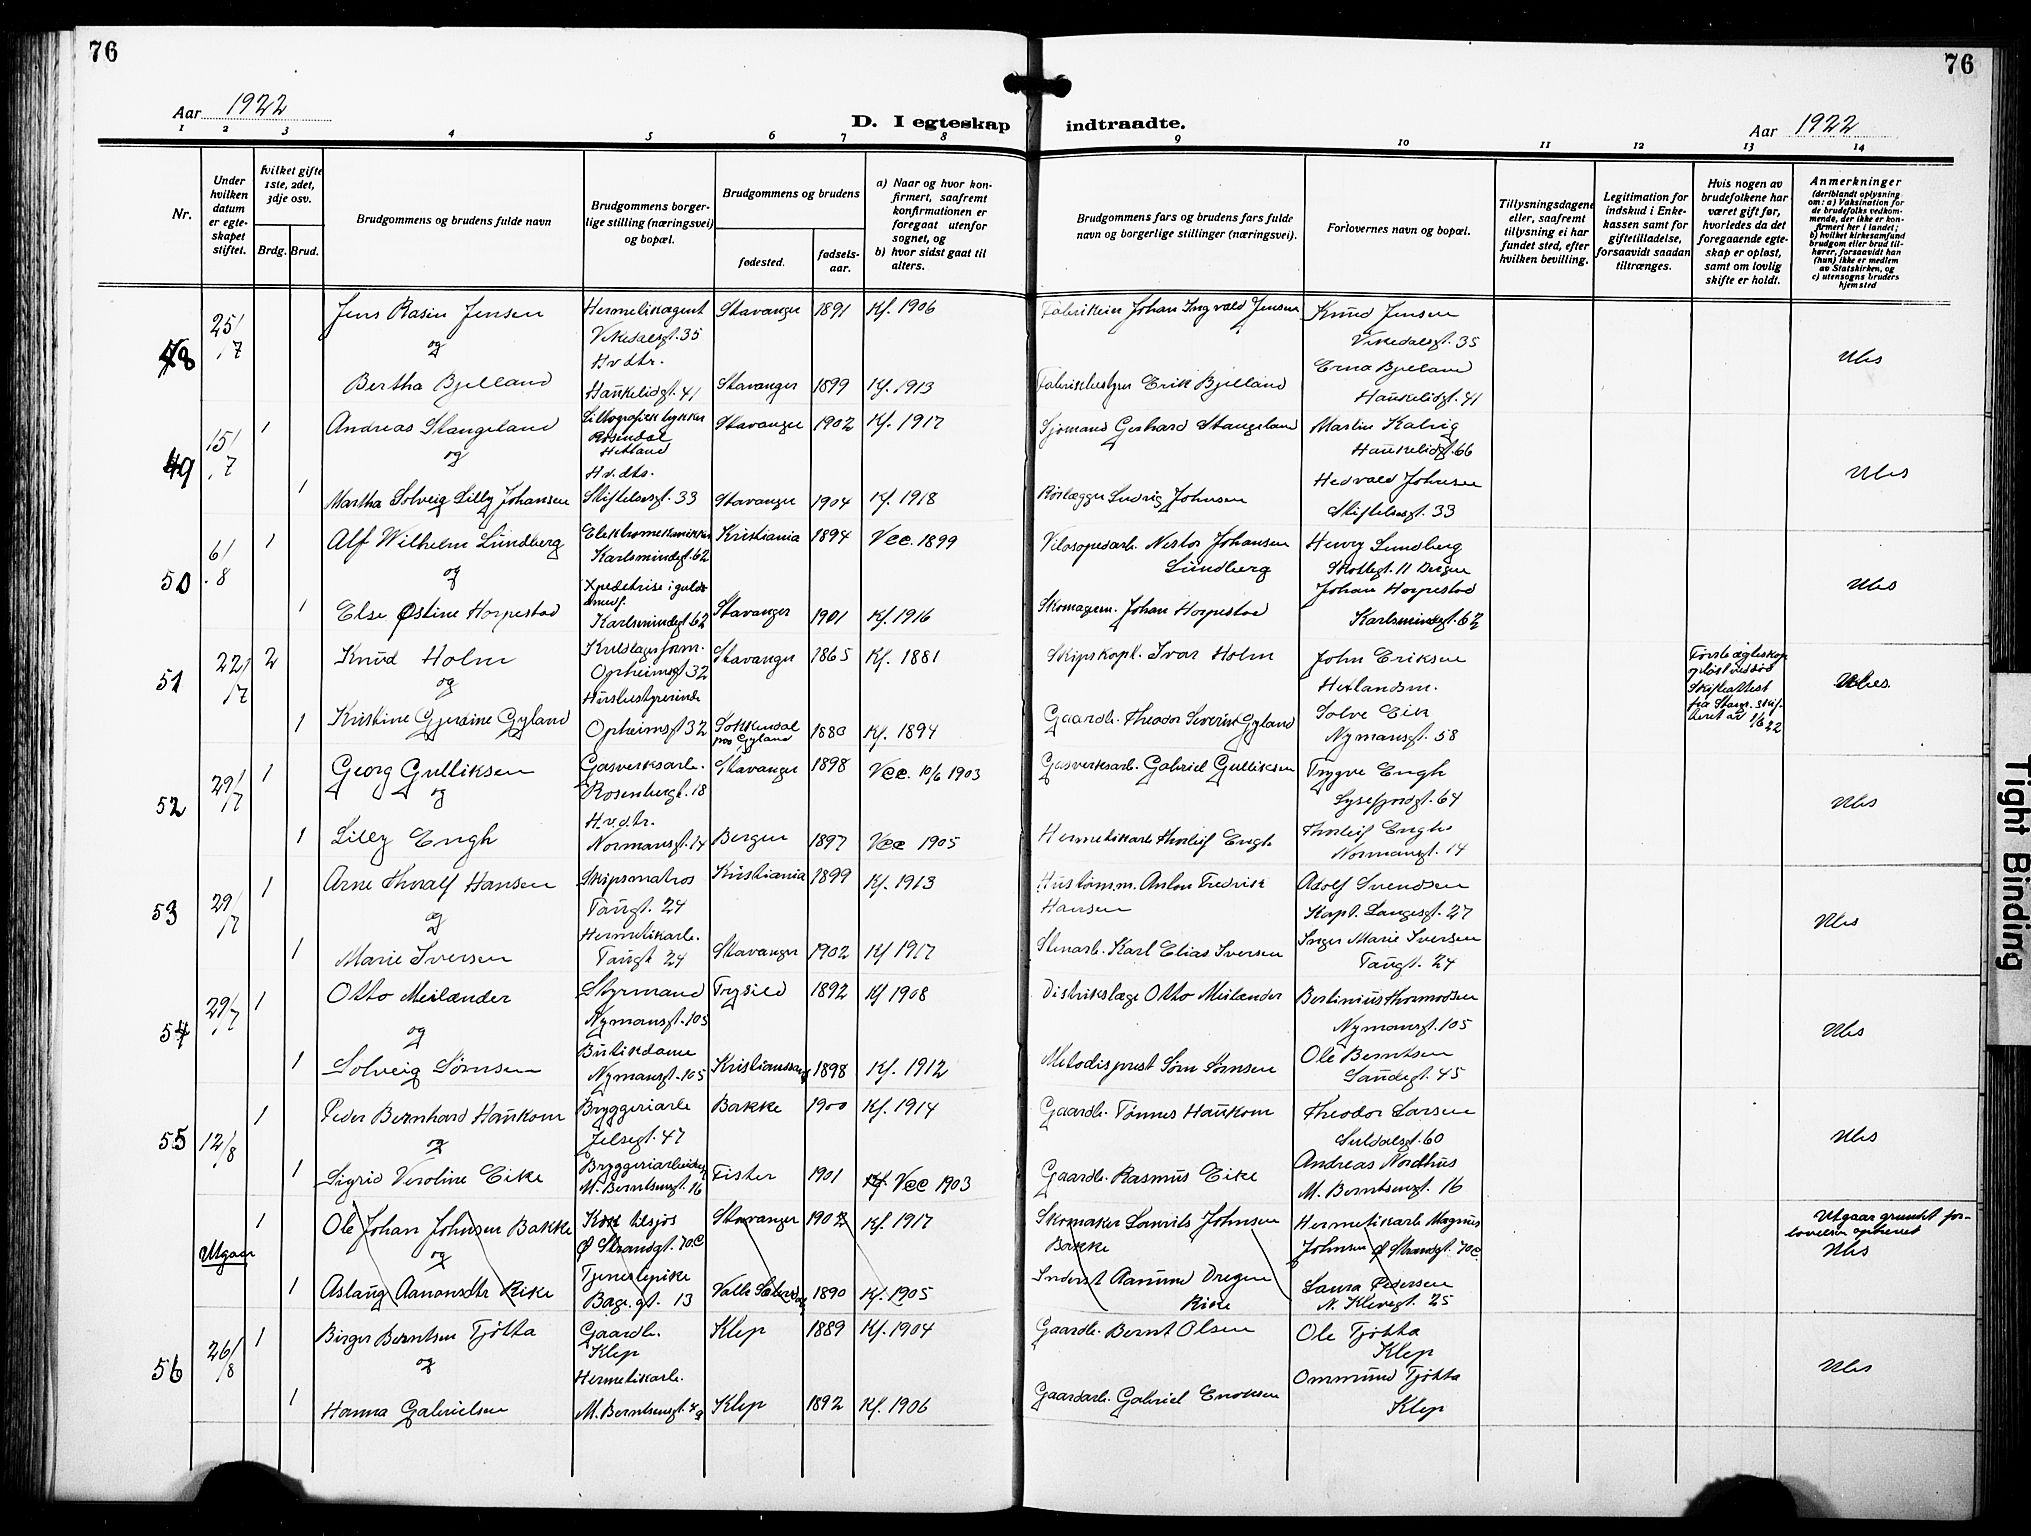 76
76
Aar 1922
D. I egteskap indtraadte.
Aar 1922
1 2 3 4 5 6 7 8 9 10 11 12 13 14
Nr.
Under hvilken datum er egteskapet stiftet.
hvilket gifte 1ste, 2det, 3dje osv.
Brdg. Brud.
Brudgommens og brudens fulde navn
Brudgommens borgerlige stilling (næringsvei) og bopæl.
Brudgommens og brudens
fødested.
fødselsaar.
a) Naar og hvor konfirmert, saafremt konfirmationen er foregaat utenfor sognet, og
b) hvor sidst gaat til alters.
Brudgommens fars og brudens fars fulde navn og borgerlige stillinger (næringsvei).
Forlovernes navn og bopæl.
Tillysningsdagene eller, saafremt tillysning ei har fundet sted, efter hvilken bevilling.
Legitimation for indskud i Enkekassen samt for giftetilladelse, forsaavidt saadan tiltrænges.
Hvis nogen av brudefolkene har været gift før, hvorledes da det foregaaende egteskap er opløst, samt om lovlig skifte er holdt.
Anmerkninger
(deriblandt oplysning om: a) Vaksination for de brudefolks vedkommende, der ikke er konfirmert her i landet; b) hvilket kirkesamfund brudgom eller brud tilhører, forsaavidt han (hun) ikke er medlem av Statskirken, og c) utensogns bruders hjemsted
48 25/7 Jens Rasin Jensen Hermetikagent Stavanger 1891 Kf. 1906 Fabrikeier Johan Ingvald Jensen Knud Jensen
og Vikedalsgt. 35 Vikedalsgt. 35
Hv.dtr. Erna Bjelland Ubs
Bertha Bjelland Haukeligt. 41 Stavanger 1899 Kf. 1913 Fabrikbestyrer Erik Bjelland Haukeligt. 41
49 15/7 1 Andreas Stangeland Litografisk trykker Stavanger 1902 Kf. 1917 Sjømand Gerhard Stangeland Martin Kalvig
og Rosendal Hetland Haukeligt. 66
Hv.dtr. Hedvald Johnsen Ubs
1 Martha Solveig Lilly Johansen Skiftelsesgt. 33 Stavanger 1904 Kf. 1918 Rørlægger Ludvig Johnsen Skiftelsesgt. 33
50 6/8 1 Alf Wilhelm Lundberg Elektromekaniker Kristiania 1894 Vcc. 1899 Velosopedarb. Nestor Johansen Lundberg Henry Lundberg
og Karlsmindegt. 62 Skottegt. 11 Bergen
Xpeditrise i guldsmedf. Johan Horpestad Ubs
1 Else Østine Horpestad Karlsmindegt 62 Stavanger 1901 Kf. 1916 Skomagerm. Johan Horpestad Karlsmindegt. 62
51 22/7 2 Knud Holm Stavanger 1865 Kf. 1881 Skipskapt. Ivar Holm John Eriksen Første ægteskap opløst ved død Skifteattest fra Stavr. skifteret av 1/6 22
og Opheimsgt 32 Hetlandsm.
Husbestyrerinde Solve Eik Ubs
1 Kristine Gjerdine Gyland Opheimsgt 32 Sokkendal pr Gyland 1880 Kf. 1894 Gaardb. Theodor Severin Gyland Nymansgt. 58
52 29/7 1 Georg Gulliksen Gasverksarb. Stavanger 1898 Vcc. 10/6 1903 Gasverksarb. Gabriel Gulliksen Trygve Engh
og Rosenbergt. 18 Lysefjordgt. 64
Hv.dtr. Thorleif Engh Ubs
1 Lilly Engh Normansgt. 14 Bergen 1897 Vcc 1905 Hermetikarb Thorleif Engh Normansgt. 14
53 29/7 1 Arne Thoralf Hansen Skipsmatros Kristiania 1899 Kf. 1913 Hustømm. Anton Fredrik Hansen Adolf Svendsen
og Taugt. 24 Kapt. Langesgt. 27
Hermetikarb. Inger Marie Iversen Ubs
1 Marie Iversen Taugt 24 Stavanger 1902 Kf 1917 Stenarb. Karl Elias Iversen Taugt. 24
54 29/7 1 Otto Meilænder Styrmand Trysild 1892 Kf 1908 Distrikslæge Otto Meilænder Bertinius Thormodsen
og Nymansgt. 105 Nymansgt. 105
Butikdame Ole Berntsen Ubs
1 Solveig Sørnsen Nymansgt. 105 Kristianssand 1898 Kf. 1912 Metodisprest Sørn Sørnsen Sandegt. 45
55 12/8 1 Peder Bernhard Haukom Bryggeriarb Bakke 1900 Kf. 1914 Gaardb. Tønnes Haukom Theodor Larsen
og Jelsegt. 47 Suldalsgt. 60
Bryggeriarbeider Andreas Nordhus Ubs
1 Sigrid Veroline Eike M. Berntsensgt. 16 Fister 1901 Vcc 1903 Gaardb. Rasmus Eike M. Berntsensgt. 16
Utgaar 1 Ole Johan Johnsen Bakke Kok tilsjøs Stavanger 1902 Kf. 1917 Skomaker Laurits Johnsen Bakke Hermetikarb Magnus Johnsen Utgaar grundet forlovelsen ophævet
og Ø Strandgt. 70c Ø Strandgt. 70c Ubs
1 Aslaug Aanonsdtr Rike Tjenestepike Valle Sætersdal 1890 Kf. 1905 Inderst Aanund Dregen Rike Laura Pedersen
Bage.gt. 13 N. Klevegt. 25
56 26/8 1 Birger Berntsen Tjøtta Gaardb. Klep 1889 Kf. 1904 Gaardb. Bernt Olsen Ole Tjøtta
og Klep Klep
Hermetikarb. Ommund Tjøtta Ubs
1 Hanna Gabrielsen M. Berntsensgt. 49 Klep 1892 Kf. 1906 Gaardarb. Gabriel Enoksen Klep
Tight Binding